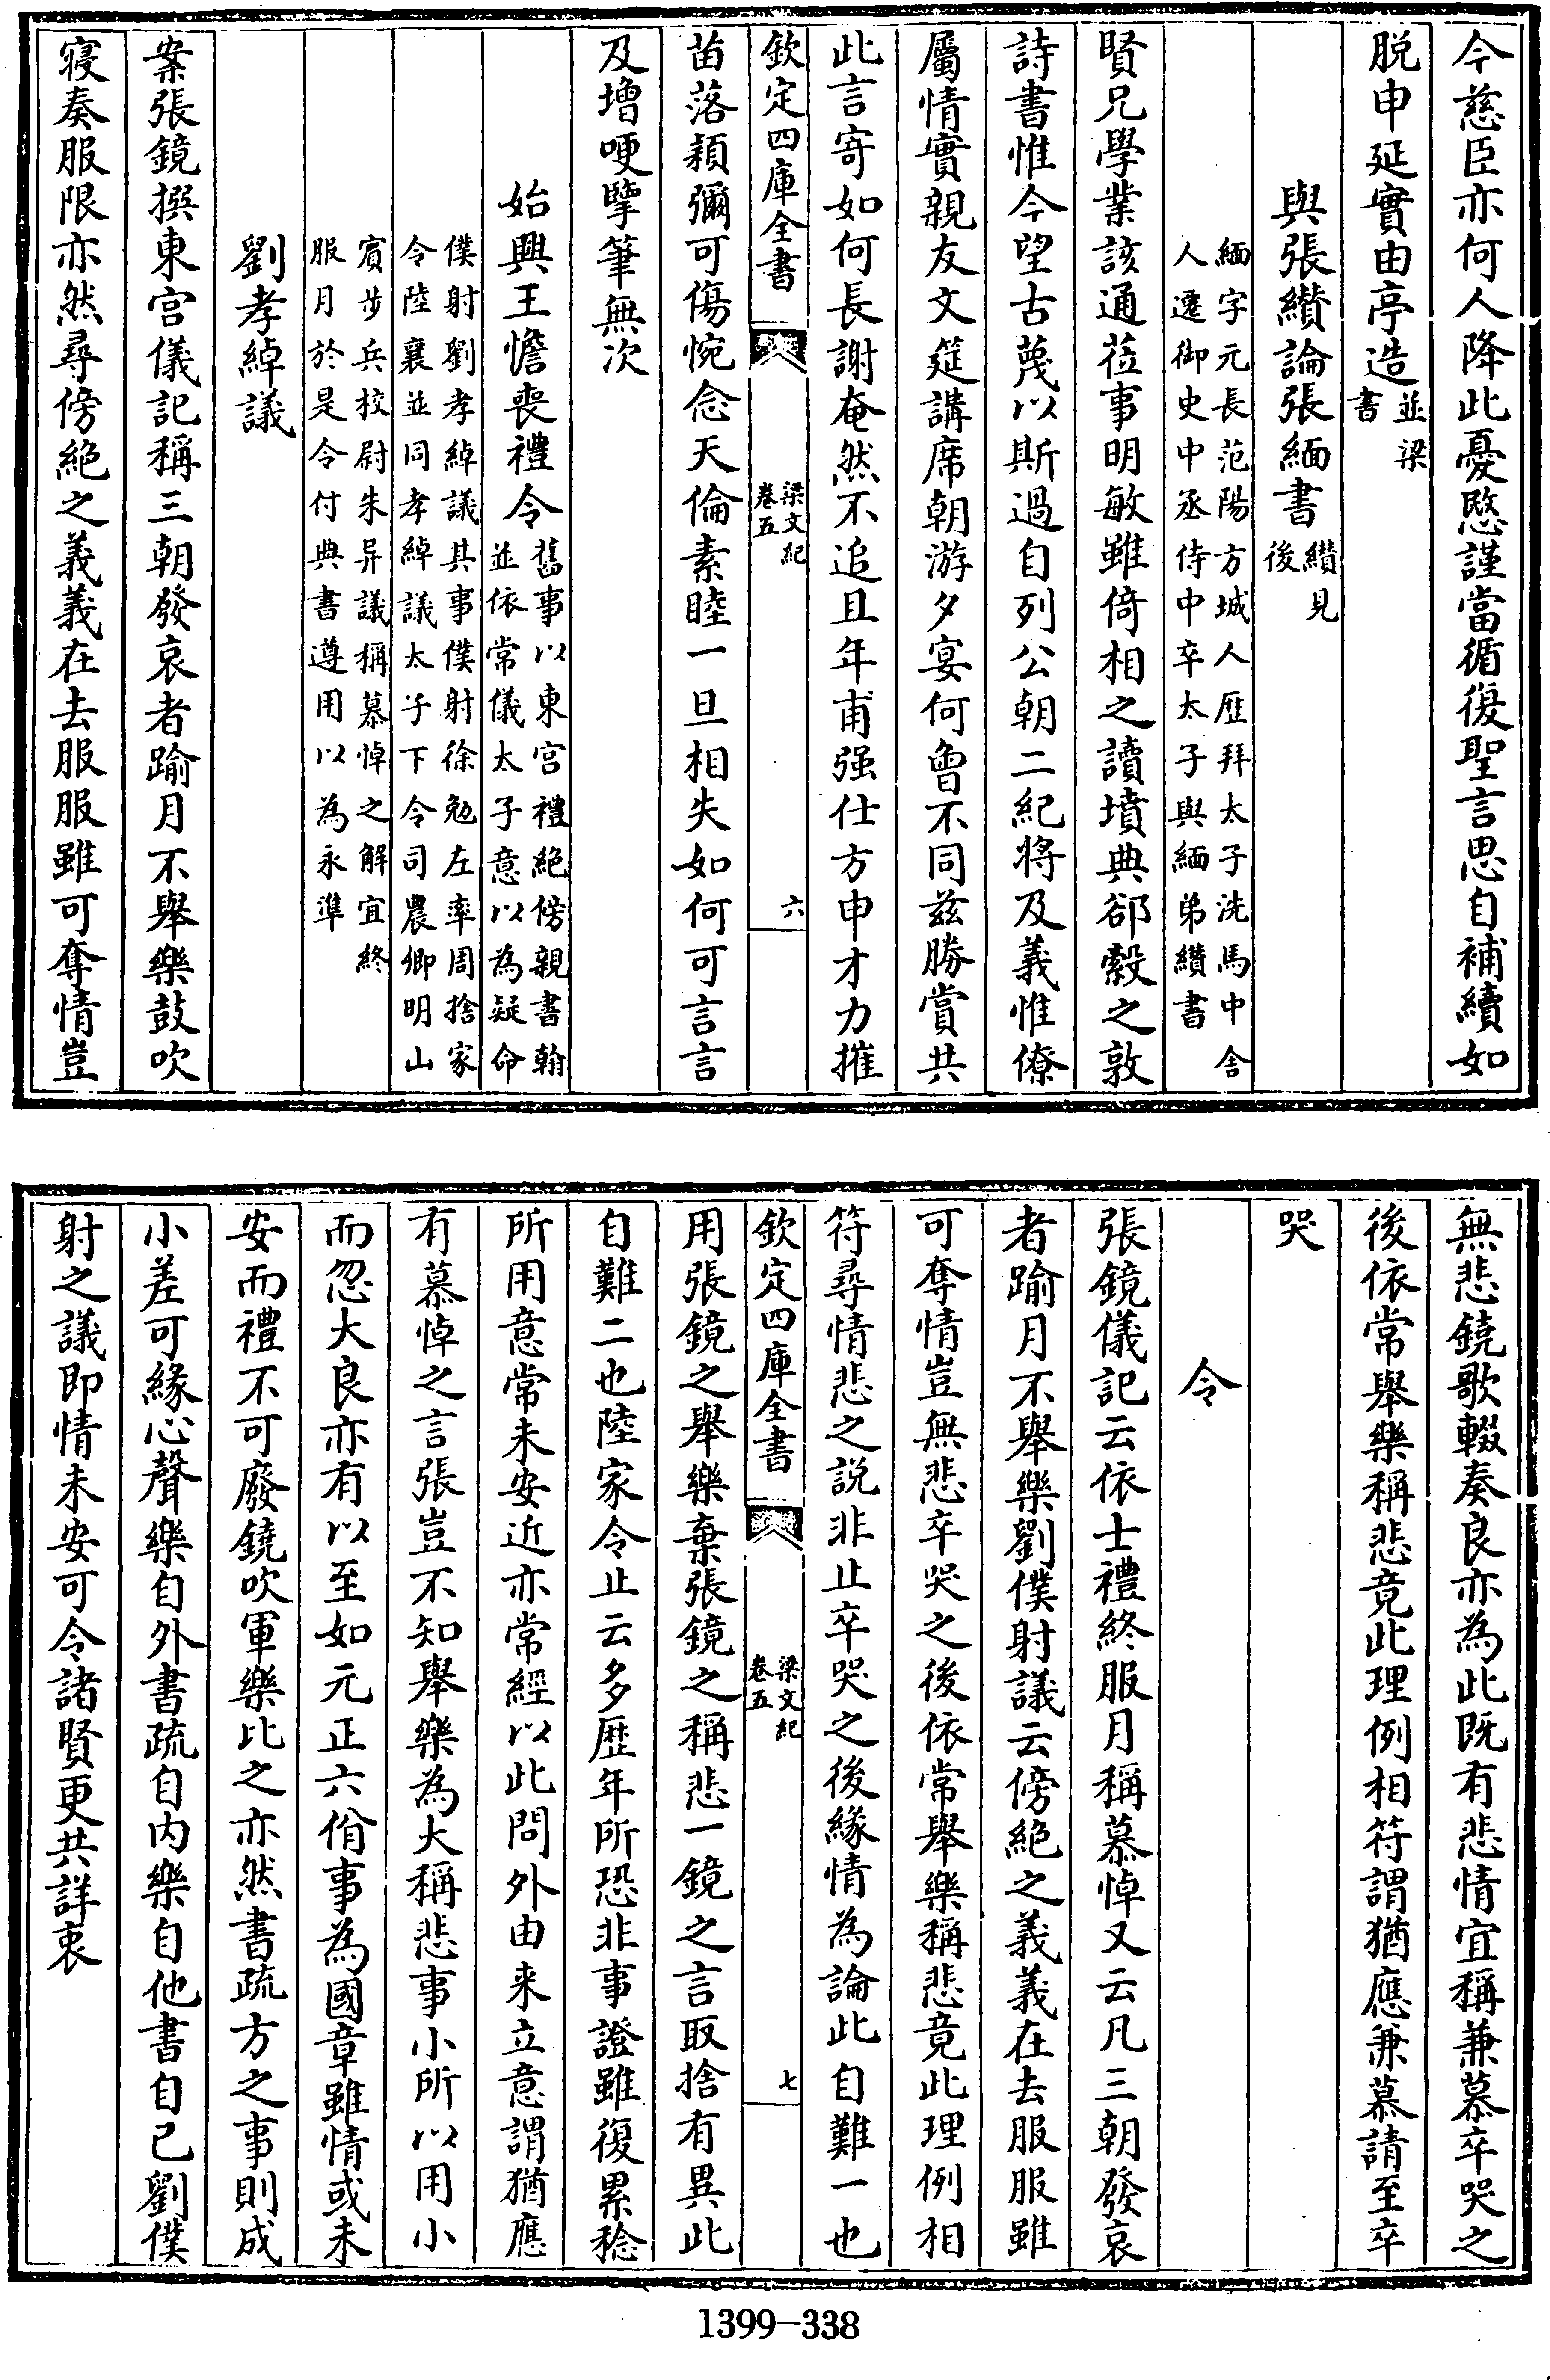 今慈臣亦何人降此憂愍謹當循復聖言思自補續如
脱申延實由亭造並梁書
與張纘論張緬書纘見後
緬字元長范陽方城人歷拜太子洗馬中舍
人遷御史中丞侍中卒太子與緬弟纘書
賢兄學業該通莅事明敏雖倚相之讀墳典郤縠之敦
詩書惟今望古蔑以斯過自列公朝二紀將及義惟僚
屬情實親友文筵講席朝游夕宴何曾不同兹勝賞共
此言寄如何長謝奄然不追且年甫强仕方申才力摧
欽定四庫全書
梁文紀
卷五
六
苗落穎彌可傷惋念天倫素睦一旦相失如何可言言
及增哽擥筆無次
始興王憺喪禮令舊事以東宫禮絶傍親書翰
並依常儀太子意以為疑命
僕射劉孝綽議其事僕射徐勉左率周捨家
令陸襄並同孝綽議太子下令司農卿明山
賓步兵校尉朱异議稱慕悼之解宜終
服月於是令付典書遵用以為永準
劉孝綽議
案張鏡撰東宫儀記稱三朝發哀者踰月不舉樂鼓吹
寢奏服限亦然尋傍絶之義義在去服服雖可奪情豈
無悲鐃歌輟奏良亦為此既有悲情宜稱兼慕卒哭之
後依常舉樂稱悲竟此理例相符謂猶應兼慕請至卒
哭
令
張鏡儀記云依士禮終服月稱慕悼又云凡三朝發哀
者踰月不舉樂劉僕射議云傍絶之義義在去服服雖
可奪情豈無悲卒哭之後依常舉樂稱悲竟此理例相
符尋情悲之説非止卒哭之後緣情為論此自難一也
欽定四庫全書
梁文紀
卷五
七
用張鏡之舉樂棄張鏡之稱悲一鏡之言取捨有異此
自難二也陸家令止云多歴年所恐非事證雖復累稔
所用意常未安近亦常經以此問外由来立意謂猶應
有慕悼之言張豈不知舉樂為大稱悲事小所以用小
而忽大良亦有以至如元正六佾事為國章雖情或未
安而禮不可廢鐃吹軍樂比之亦然書疏方之事則成
小差可緣心聲樂自外書疏自内樂自他書自己劉僕
射之議即情未安可令諸賢更共詳衷
1399-338